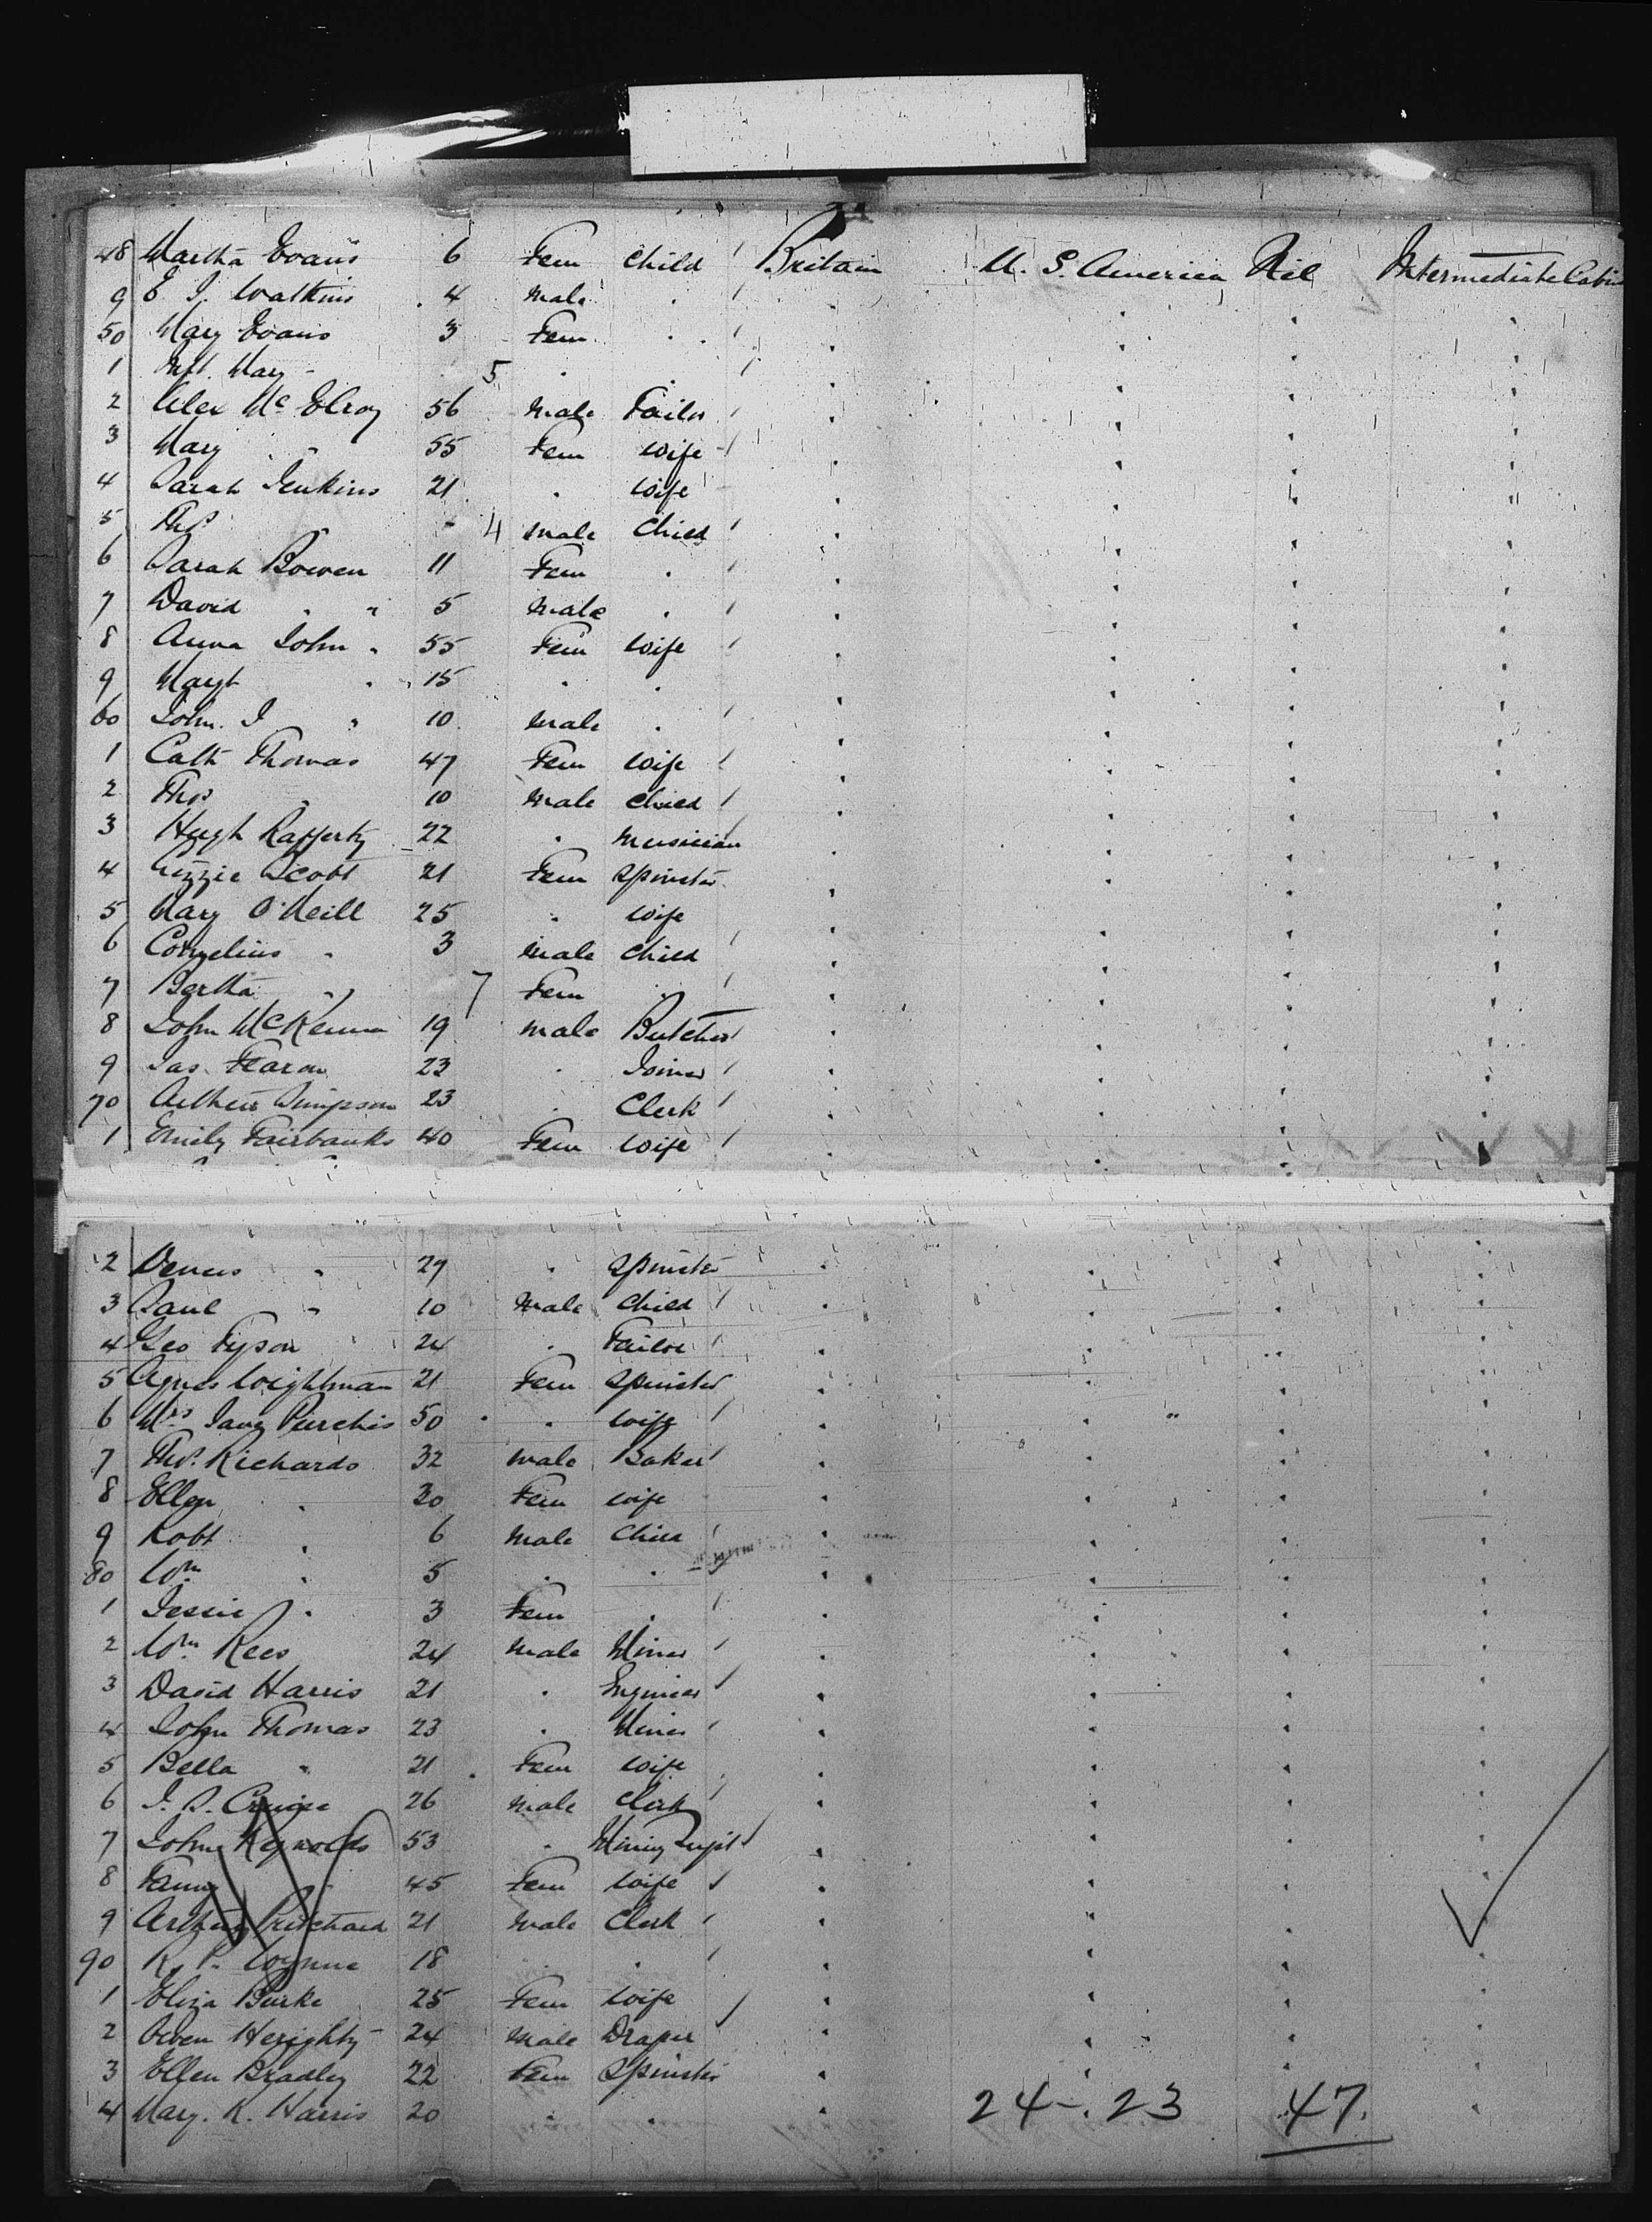 48 Martha Evans 6 Fem Child / Britain U. S. America Nil Intermediate Cabin
9 E J. Watkins 4 Male . /
50 Mary Evans 3 Fem . /
1 Inft. Mary - 5 . . /
2 Alex McElroy 56 Male Tailor /
3 Mary " 55 Fem Wife /
4 Sarah Jenkins 21 . Wife
5 Thos " 4 Male Child /
6 Sarah Bowen 11 Fem . /
7 David " 5 Male . /
8 Anna John 55 Fem Wife /
9 Margt " 15 . .
60 John. J " 10 Male . /
1 Cath Thomas 47 Fem Wife /
2 Thos " 10 Male Child /
3 Hugh Rafferty 22 . Musician
4 Lizzie Scott 21 Fem Spinster
5 Mary O'Neill 25 . Wife
6 Cornelius " 3 Male Child /
7 Bertha " 7 Fem . /
8 John McKenna 19 Male Butcher /
9 Jas. Fearon 23 . Joiner /
70 Arthur Simpson 23 . Clerk /
1 Emily Fairbanks 40 Fem Wife /
2 " 29 . Spinster
3 " 10 Male Child /
4 Geo Tyson 24 . Tailor /
5 Agnes Wightman 21 Fem Spinster
6 Mrs Jane Purchis 50 . Wife /
7 Thos. Richards 32 Male Baker /
8 Ellen " 30 Fem Wife
9 Robt " 6 Male Child /
80 Wm " 5 . .
1 Jessie " 3 Fem . /
2 Wm. Rees 24 Male Miner /
3 David Harris 21 . Engineer /
4 John Thomas 23 . Miner /
5 Bella " 21 Fem Wife
6 J. S. 26 Male Clerk /
7 John Reynolds 53 . Mining Supt /
8 Fanny " 45 Fem Wife /
9 Arthur Pritchard 21 Male Clerk /
90 R. P. Wynne 18 . . /
1 Eliza Burke 25 Fem Wife /
2 Owen Herighty 24 Male Draper
3 Ellen Bradley 22 Fem Spinster
4 Mary. K. Harris 20 . . 24 - 23 47.